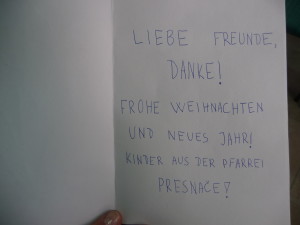 LIEBE FREUNDE,
DANKE!
FROHE WEIHNACHTEN
UND NEUES JAHR!
KINDER AUS DER PFARREI
PRESNACE!